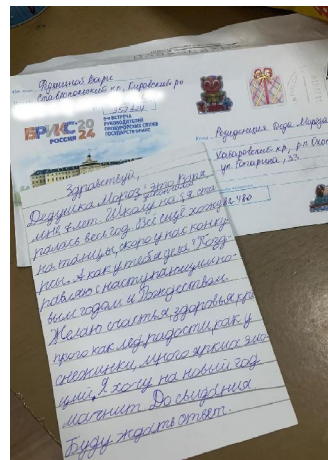 Фединой Вари
Ставропольский кр., Кировский ро
357324
БРИКС 2024
РОССИЯ
5-я ВСТРЕЧА
РУКОВОДИТЕЛЕЙ
ГОСУДАРСТВ БРИКС
Резиденция Деда Мороза
Хабаровский кр., р.п. Охот
ул. Гагарина, 33
Здравствуй,
Дедушка Мороз! Это Варя
мне лет. Школу на
ралась весь год. Всё ещё хожу
на танцы, скоро у нас конку
рсы. А как у тебя дела? Позд-
равляю с наступающим но-
вым годом и Рождеством.
Желаю счастья, здоровья кре
пкого как лёд, радости, как у
снежинки, много ярких эмо
ций. Я хочу на новый год
магнит. До свидания
Буду ждать ответ.